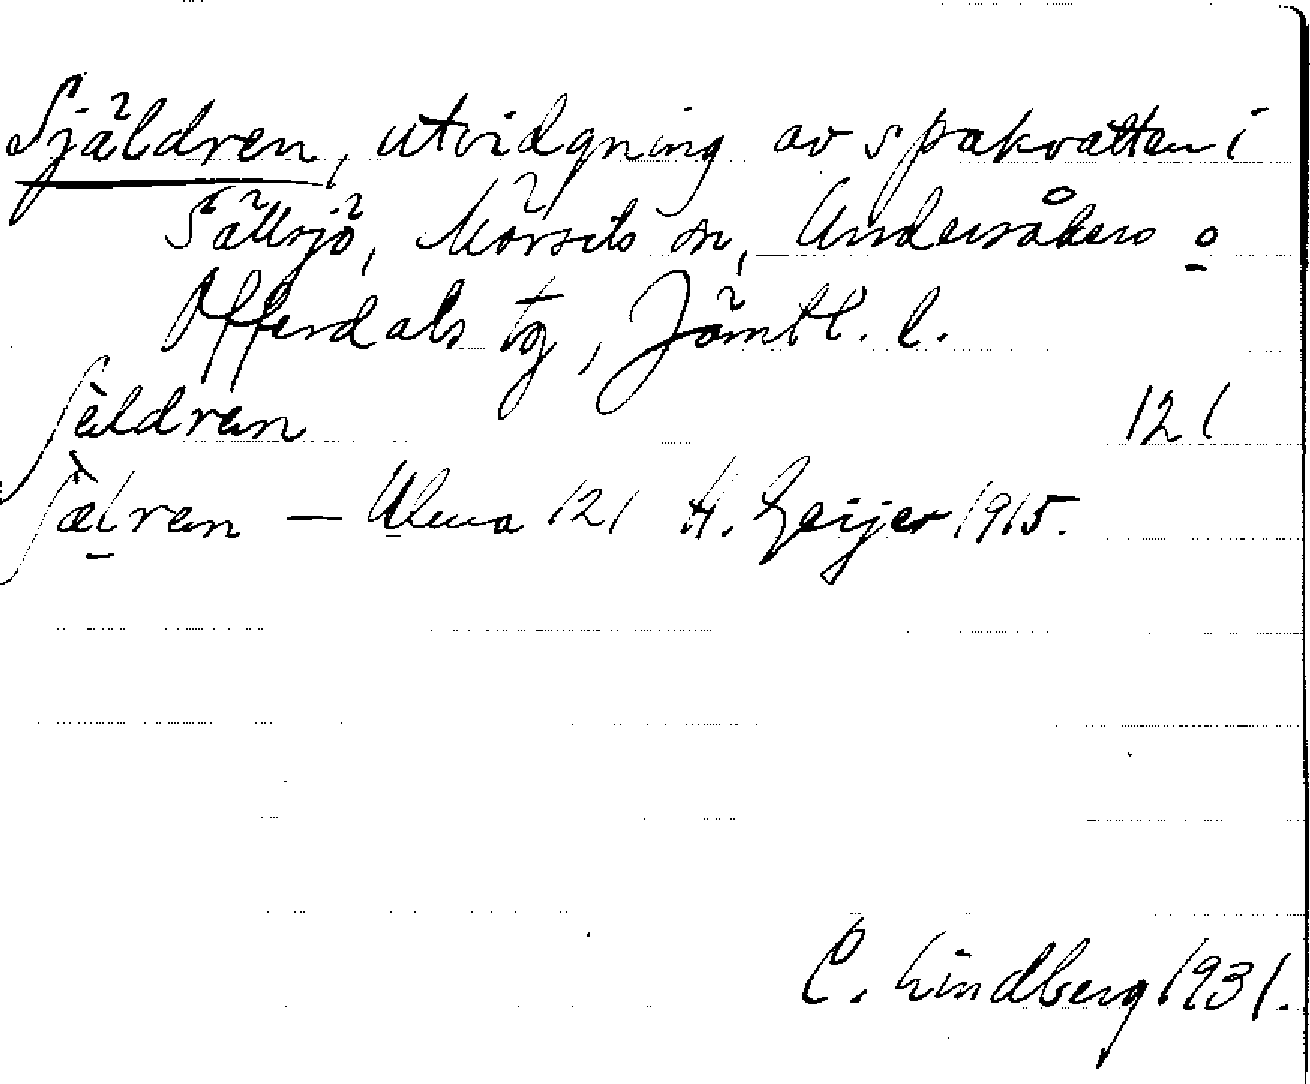 Själdren, utvidgning av spakvatten i
Sällsjö, Mörsils sn, Undersåkers o
Offerdals tg, Jämtl. l.
ʃældrɛn 121
ʃæ̀lrɛn — 121 H. Geijer 1915.
C. Lindberg 1931.